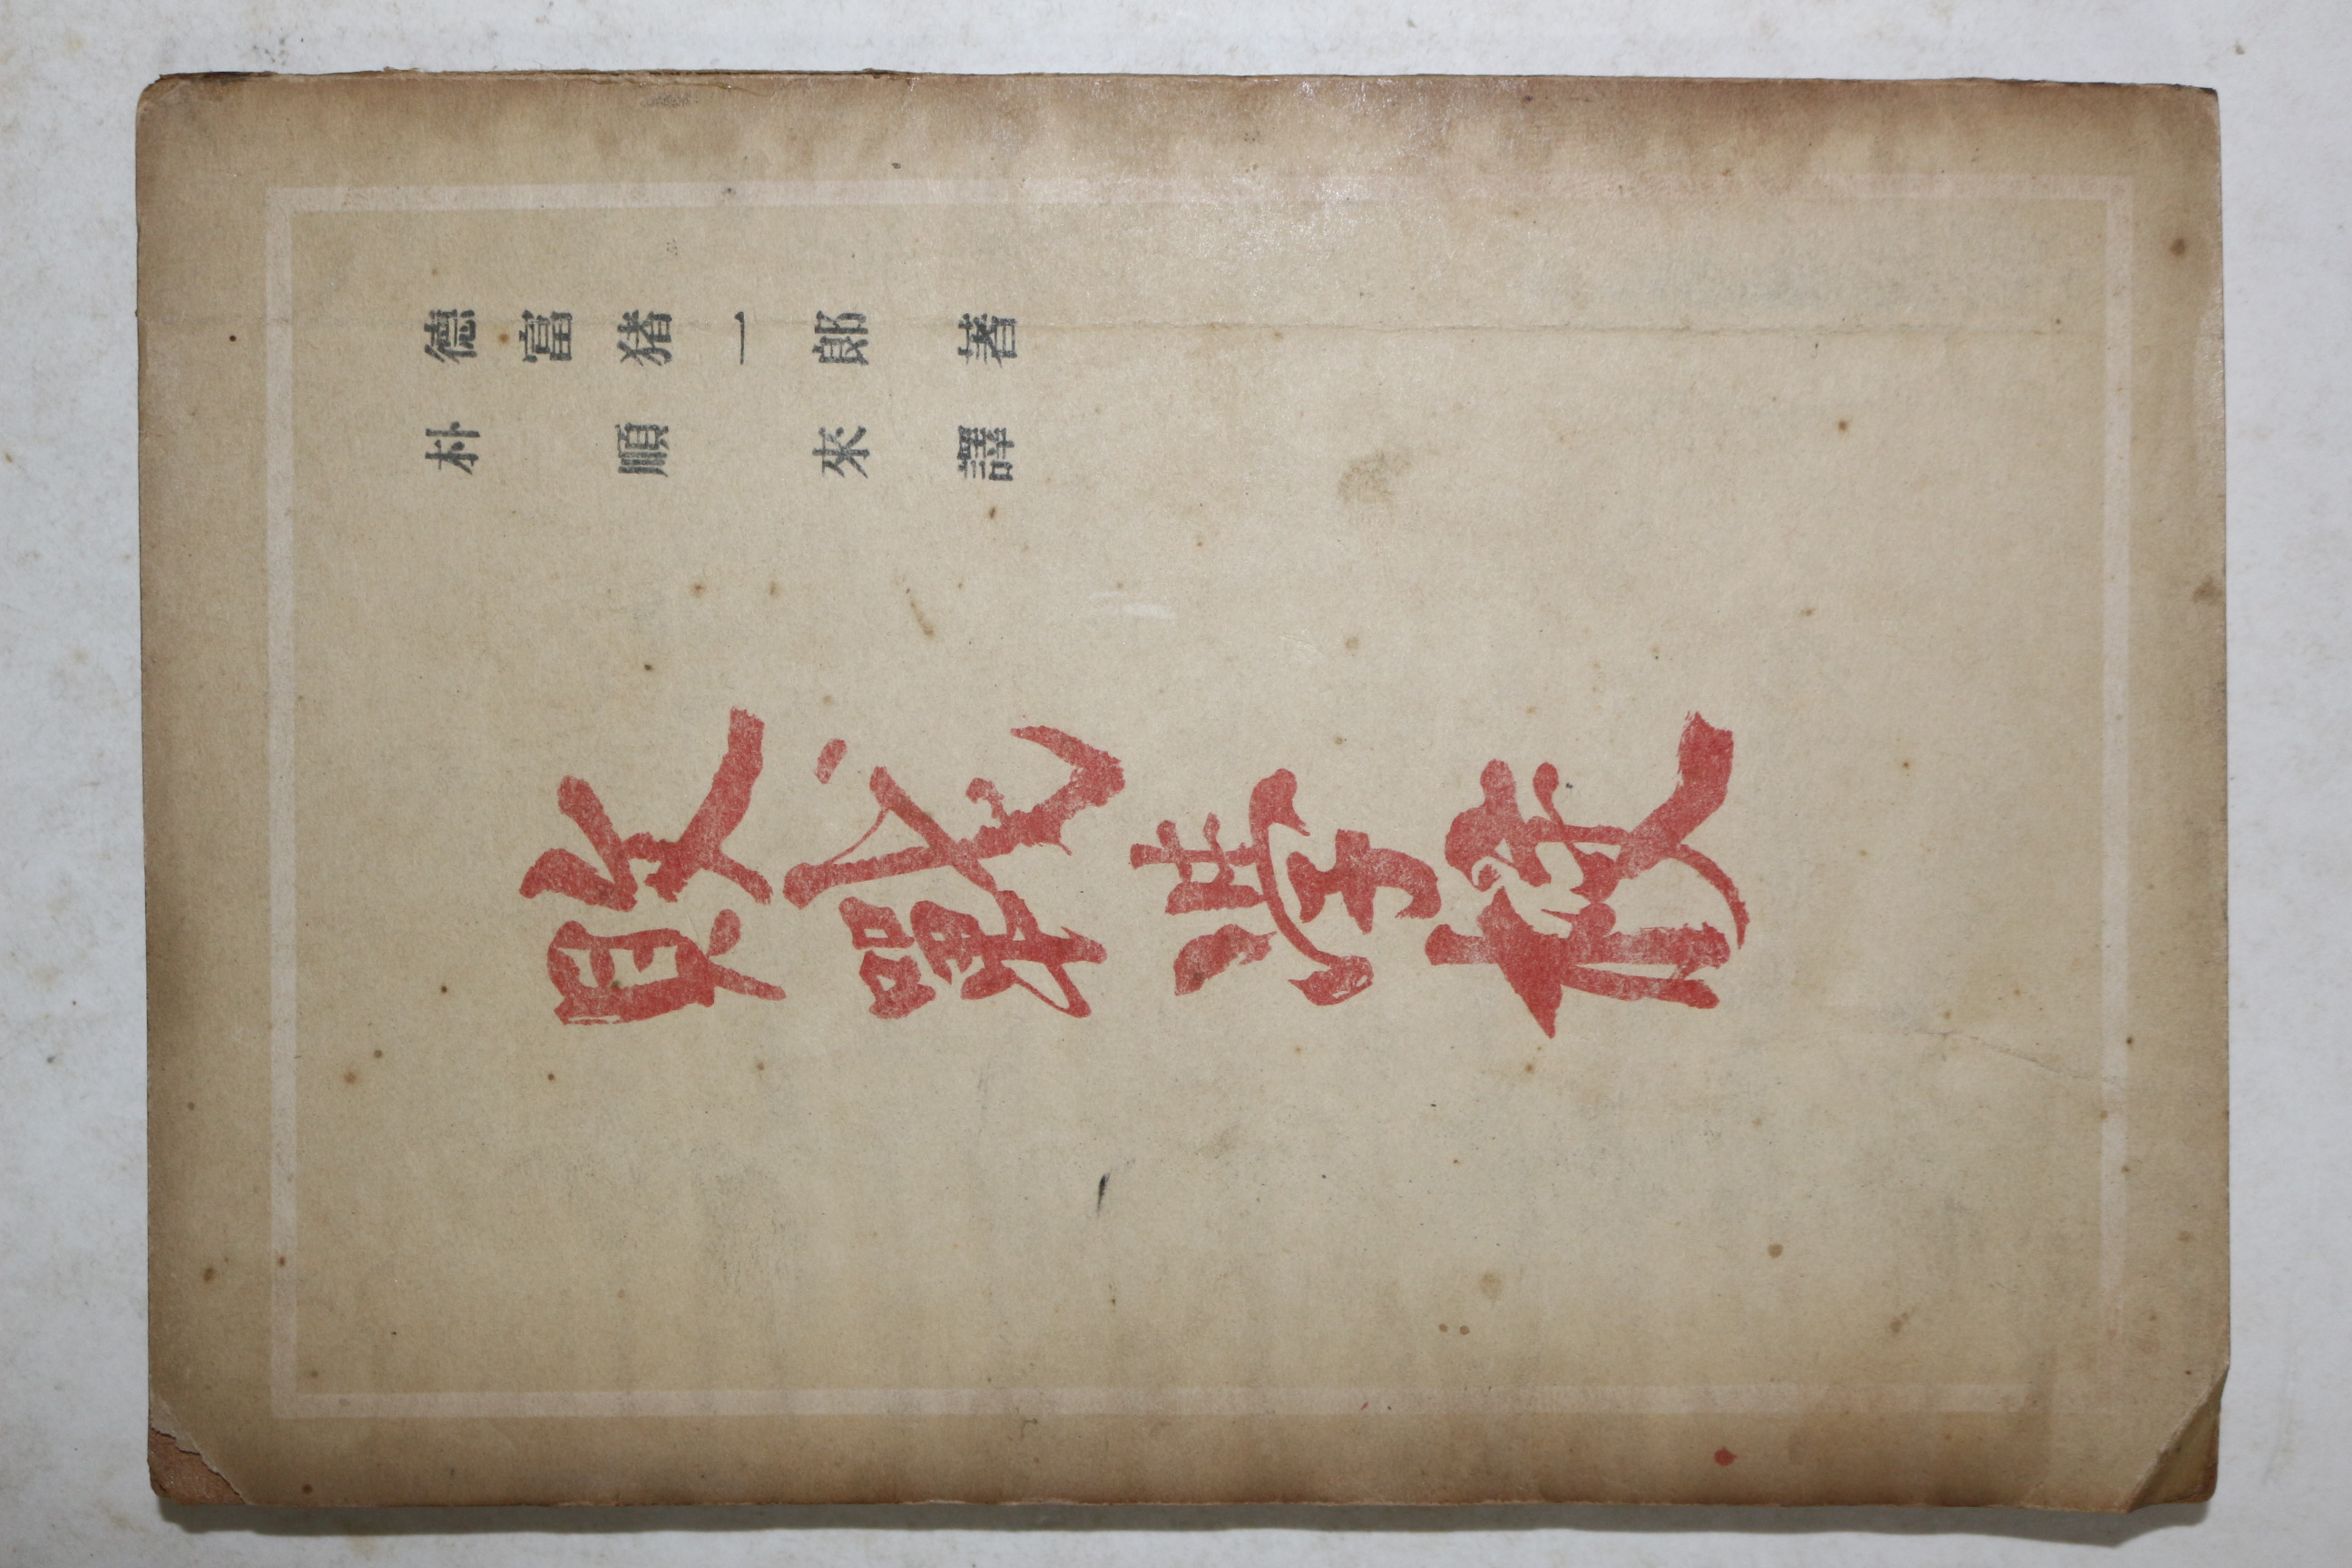 德富猪一郞 著
朴順來 譯
敗戰學校